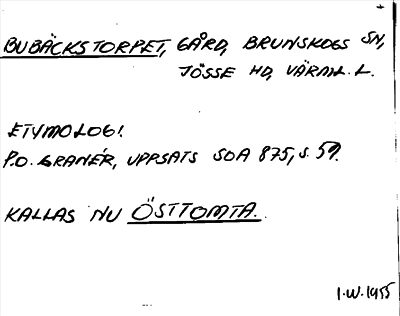 BUBÄCKSTORPET, GÅRD, BRUNSKOGS SN,
JÖSSE HD, VÄRML. L.
ETYMOLOGI.
P.O. GRANÉR, UPPSATS SOA 875, S. 59.
KALLAS NU ÖSTTOMTA.
I.W. 1955